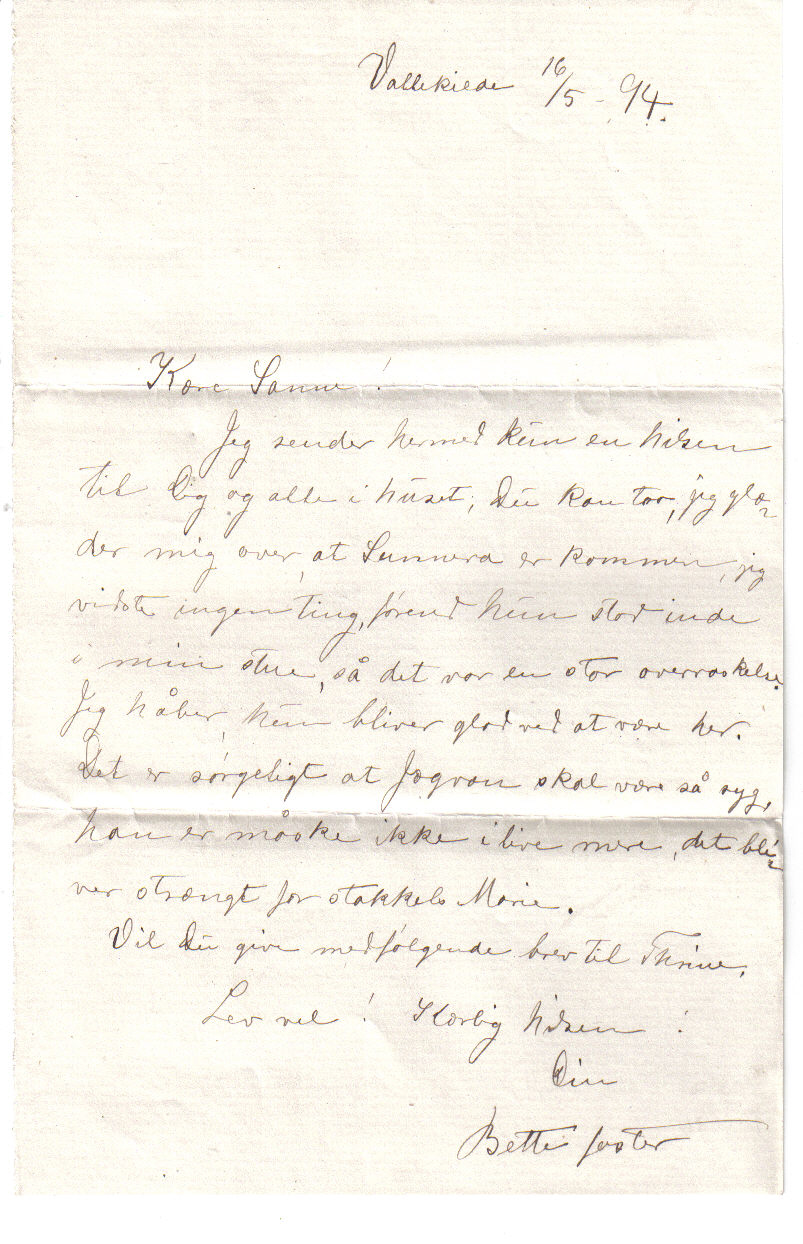 Vallekilde 16/5 - 94.
Kære Sanne!
Jeg sender hermed kun en hilsen
til Dig og alle i huset; Du kan tro, jeg glæ-
der mig over, at Sunneva er kommen, jeg
vidste ingen ting, førend hun stod inde
i min stue, så det var en stor overraskelse.
Jeg håber, hun bliver glad ved at være her.
Det er sørgeligt at Jógvan skal være så syg,
han er måske ikke i live mere, det bli-
ver strængt for stakkels Marie.
Vil Du give medfølgende brev til Thrine.
Lev vel! Kærlig hilsen!
Din
Bette faster